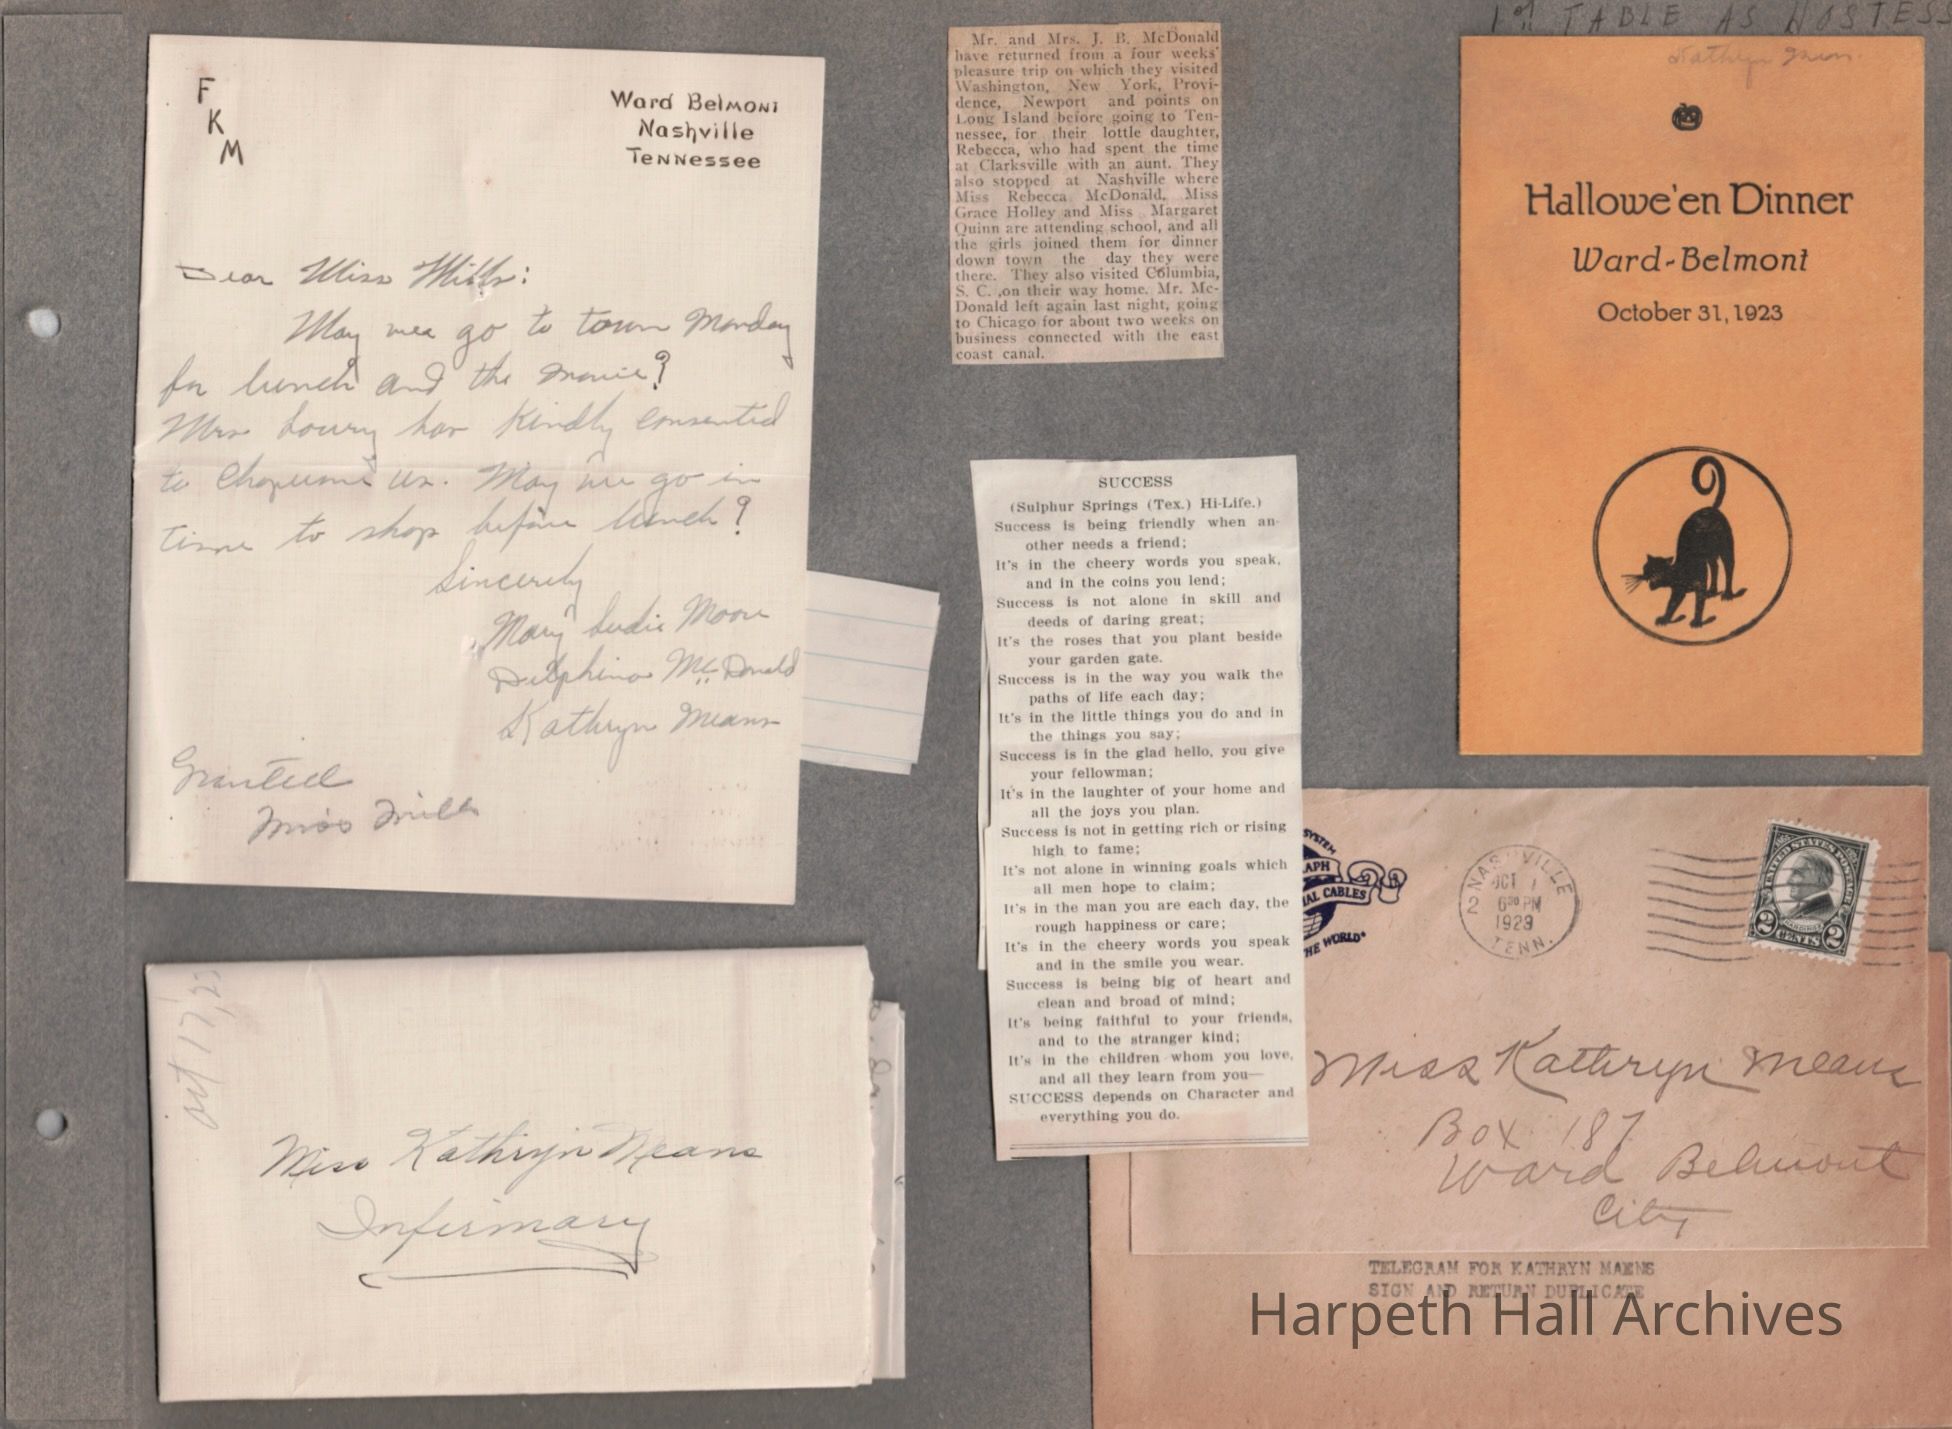 F
K
M
Ward Belmont
Nashville
Tennessee
Dear Miss Mills:
May we go to town Monday
for lunch and the movie?
Mrs Lowry has kindly consented
to chaperone us. May we go in
time to shop before lunch?
Sincerely
Mary Sudie Moore
Delphine McDonald
Kathryn Means
Granted
Miss Mills
Oct 17, 23
Miss Kathryn Means
Infirmary
Mr. and Mrs. J. B. McDonald
have returned from a four weeks'
pleasure trip on which they visited
Washington, New York, Provi-
dence, Newport and points on
Long Island before going to Ten-
nessee, for their lottle daughter,
Rebecca, who had spent the time
at Clarksville with an aunt. They
also stopped at Nashville where
Miss Rebecca McDonald, Miss
Grace Holley and Miss Margaret
Quinn are attending school, and all
the girls joined them for dinner
down town the day they were
there. They also visited Columbia,
S. C. ,on their way home. Mr. Mc-
Donald left again last night, going
to Chicago for about two weeks on
business connected with the east
coast canal.
SUCCESS
(Sulphur Springs (Tex.) Hi-Life.)
Success is being friendly when an-
other needs a friend;
It's in the cheery words you speak,
and in the coins you lend;
Success is not alone in skill and
deeds of daring great;
It's the roses that you plant beside
your garden gate.
Success is in the way you walk the
paths of life each day;
It's in the little things you do and in
the things you say;
Success is in the glad hello, you give
your fellowman;
It's in the laughter of your home and
all the joys you plan.
Success is not in getting rich or rising
high to fame;
It's not alone in winning goals which
all men hope to claim;
It's in the man you are each day, the
rough happiness or care;
It's in the cheery words you speak
and in the smile you wear.
Success is being big of heart and
clean and broad of mind;
It's being faithful to your friends,
and to the stranger kind;
It's in the children whom you love,
and all they learn from you—
SUCCESS depends on Character and
everything you do.
1st TABLE AS HOSTESS
Kathryn
Hallowe'en Dinner
Ward-Belmont
October 31, 1923
SYSTEM
APH
IAL CABLES
THE WORLD"
NASHVILLE
OCT
2 630 PM
1923
TENN.
UNITED STATES POSTAGE
2 CENTS 2
Miss Kathryn Means
Box 187
Ward Belmont
City
TELEGRAM FOR KATHRYN MAENS
SIGN AND RETURN DUPLICATE
Harpeth Hall Archives